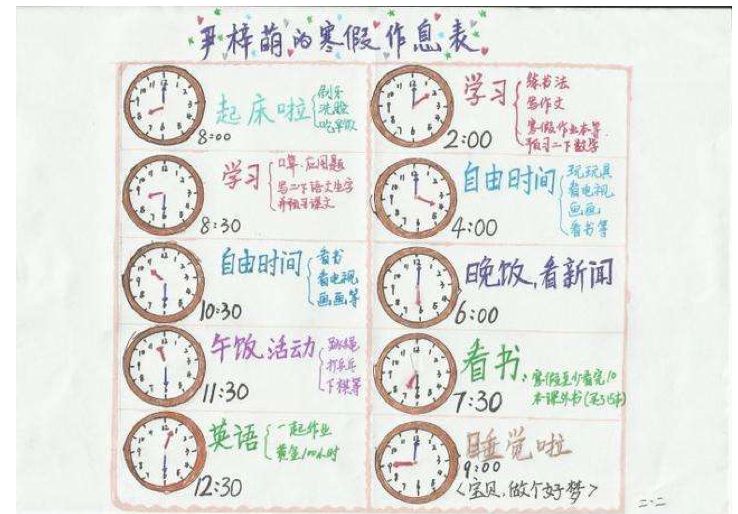 尹梓萌的寒假作息表
起床啦
刷牙
洗脸
吃早饭
8:00
学习
口算、应用题
写二下语文生字
并预习课文
8:30
自由时间
看书
看电视
画画等
10:30
午饭活动
跳绳
打乒乓
下棋等
11:30
英语
一起作业
黄金100小时
12:30
学习
练书法
写作文
寒假作业本等
预习二下数学
2:00
自由时间
玩玩具
看电视
画画
看书等
4:00
晚饭,看新闻
6:00
看书
寒假至少看完10
本课外书
7:30
睡觉啦
9:00
<宝贝,做个好梦>
二·二